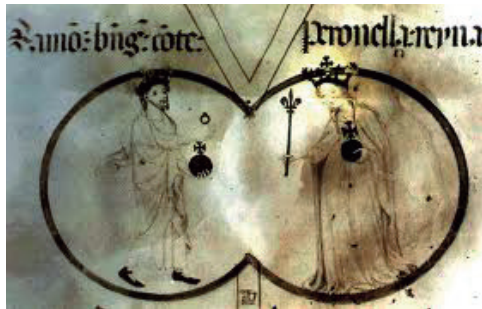 Ramō: bñg: cōte:
peronella: reyna